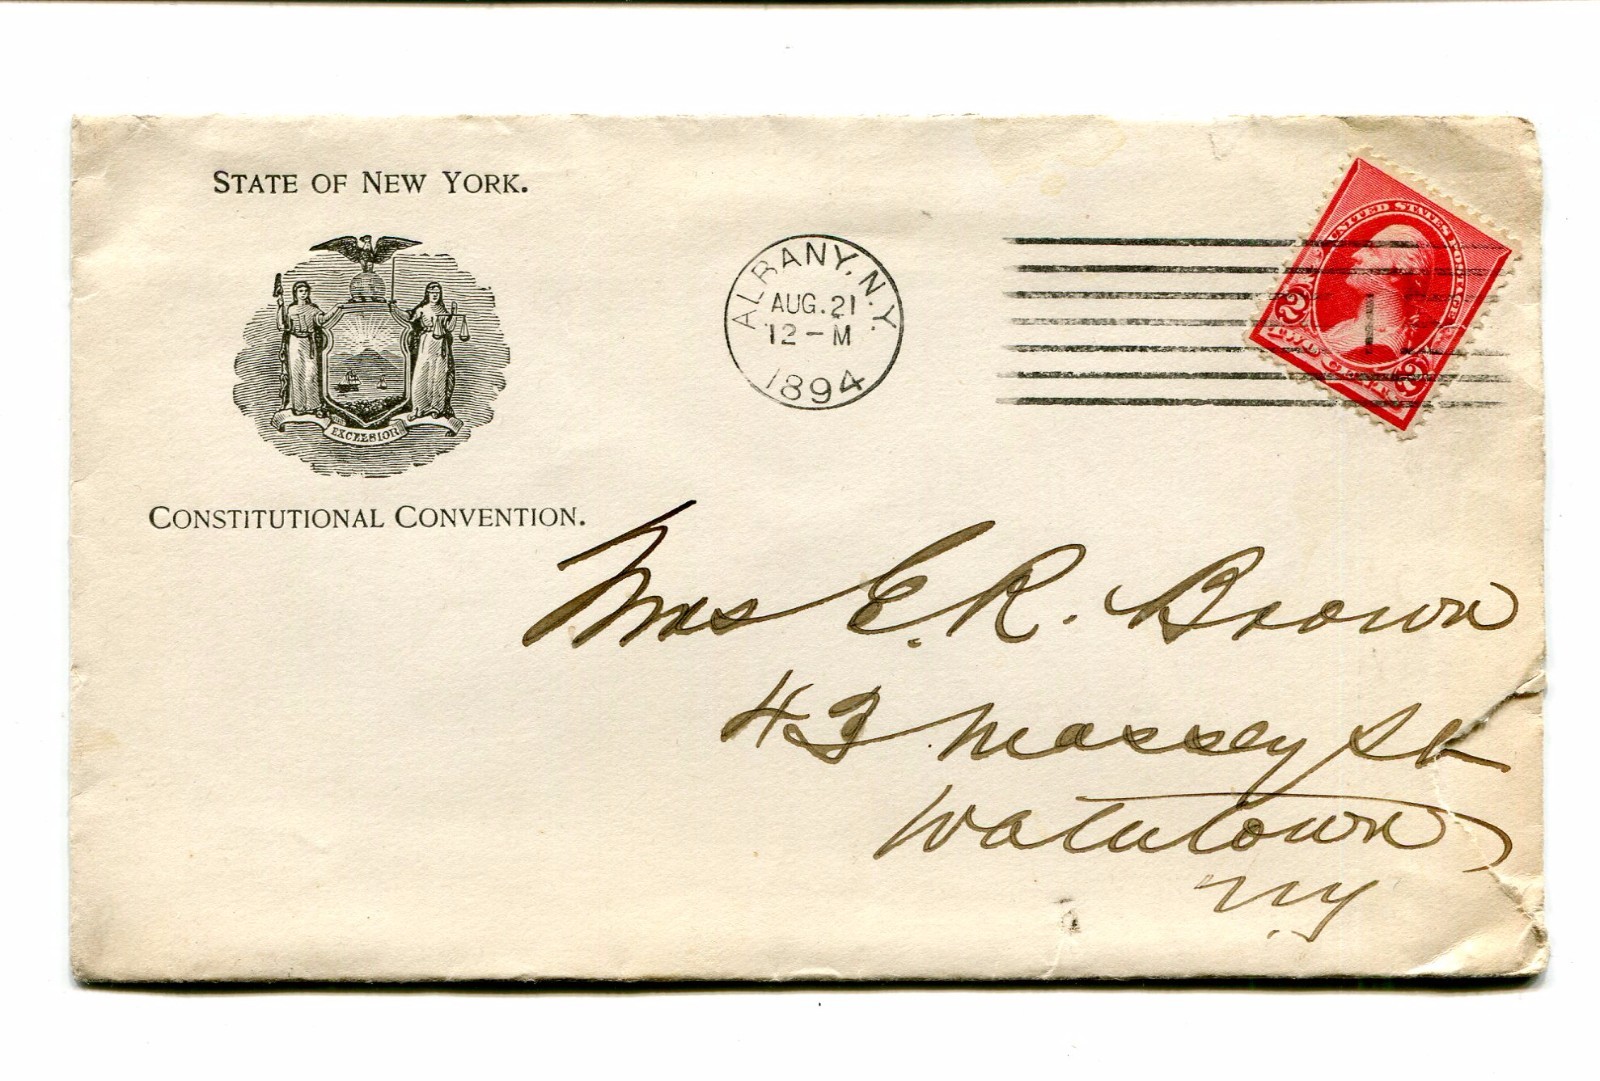 STATE OF NEW YORK.
EXCELSIOR
CONSTITUTIONAL CONVENTION.
ALBANY, N.Y.
AUG. 21
12-M
1894
1
UNITED STATES POSTAGE
2 2
TWO CENTS
Mrs E. R. Brown
43 Massey St
Watertown
N.Y